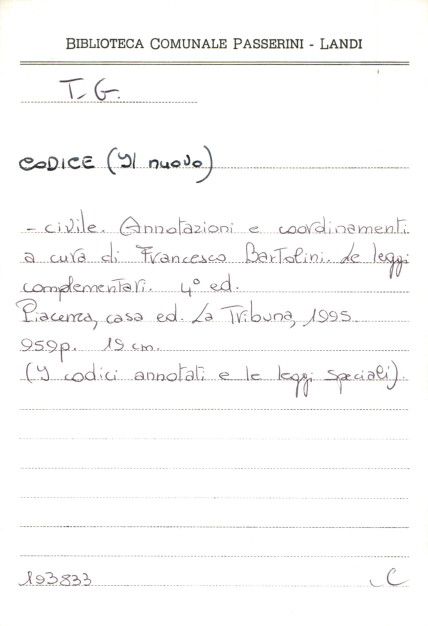 BIBLIOTECA COMUNALE PASSERINI - LANDI
T. G.
CODICE (Il nuovo)
- civile. Annotazioni e coordinamenti
a cura di Francesco Bartolini. Le leggi
complementari. 4° ed.
Piacenza, casa ed. La Tribuna, 1995.
959p. 19 cm.
(I codici annotati e le leggi speciali).
193833
C